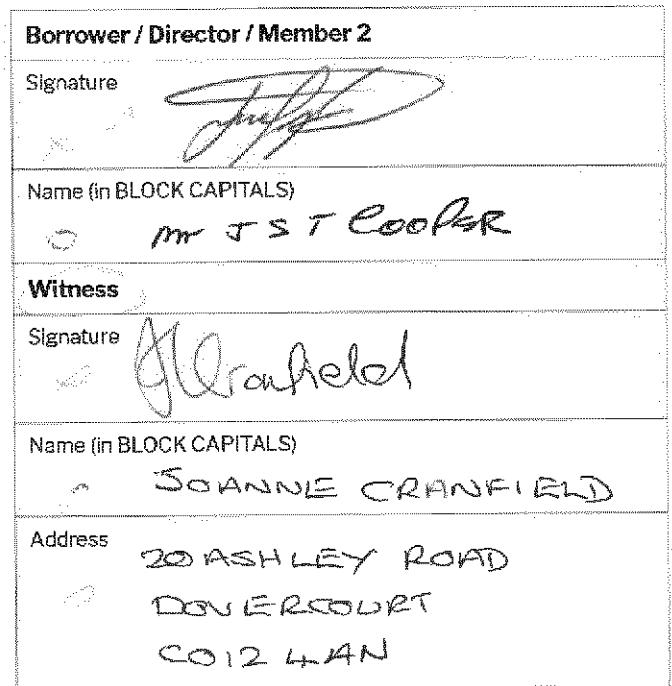 Borrower / Director / Member 2
Signature
Name (in BLOCK CAPITALS)
Mr J S T COOPER
Witness
Signature
JCranfield
Name (in BLOCK CAPITALS)
JOANNE CRANFIELD
Address
20 ASHLEY ROAD
DOVERCOURT
CO12 4AN